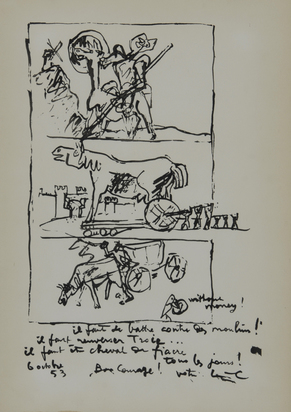 without
money!
il faut se battre contre des moulins!
il faut renverser Troie...
il faut être cheval de fiacre
tous les jours!
6 octobre
53
Bon Courage! votre